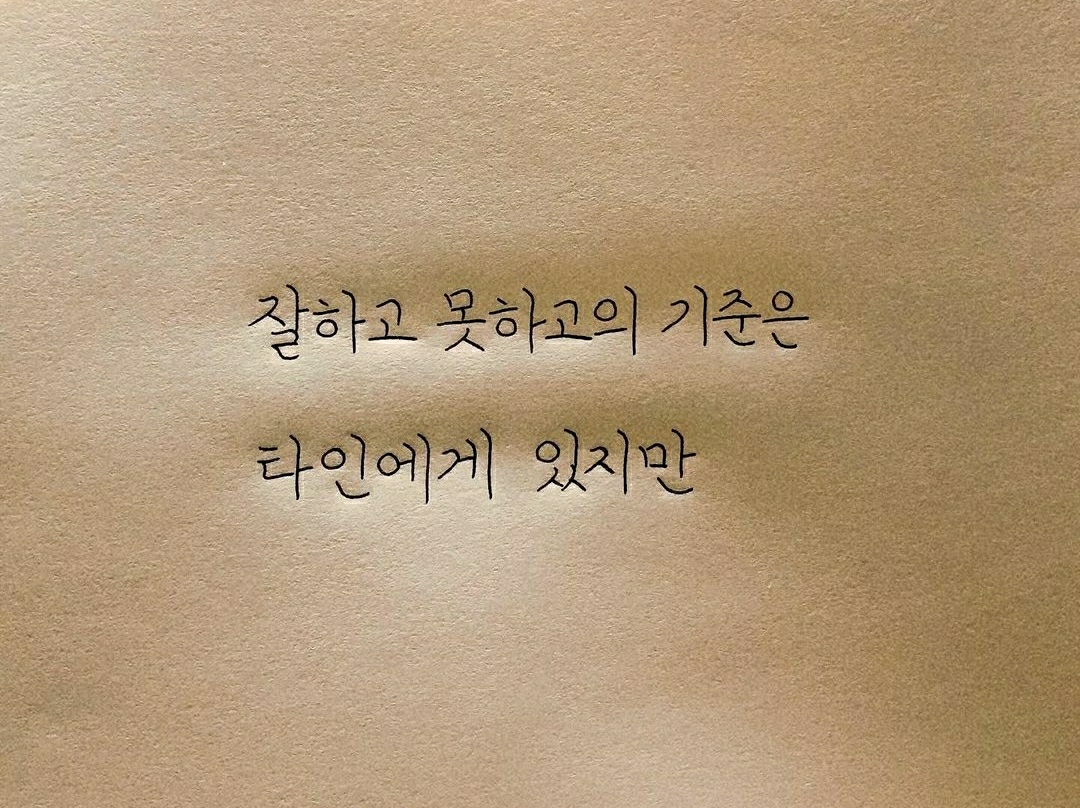 잘하고 못하고의 기준은
타인에게 있지만